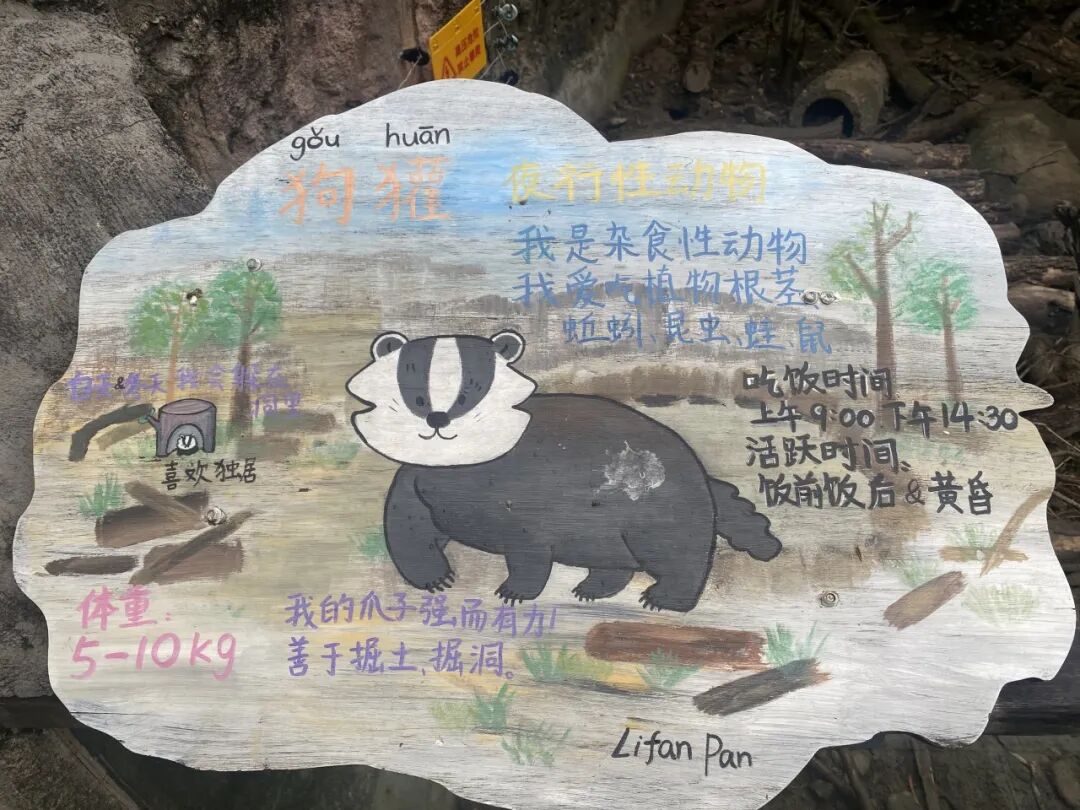 高压危险
禁止攀爬
gǒu huān
狗獾
夜行性动物
我是杂食性动物
我爱吃植物根茎、
蚯蚓、昆虫、蛙、鼠
白天&冬天我会躲在
洞里
喜欢独居
吃饭时间
上午9:00 下午14:30
活跃时间、
饭前饭后&黄昏
体重:
5-10kg
我的爪子强而有力!
善于掘土、掘洞。
Lifan Pan